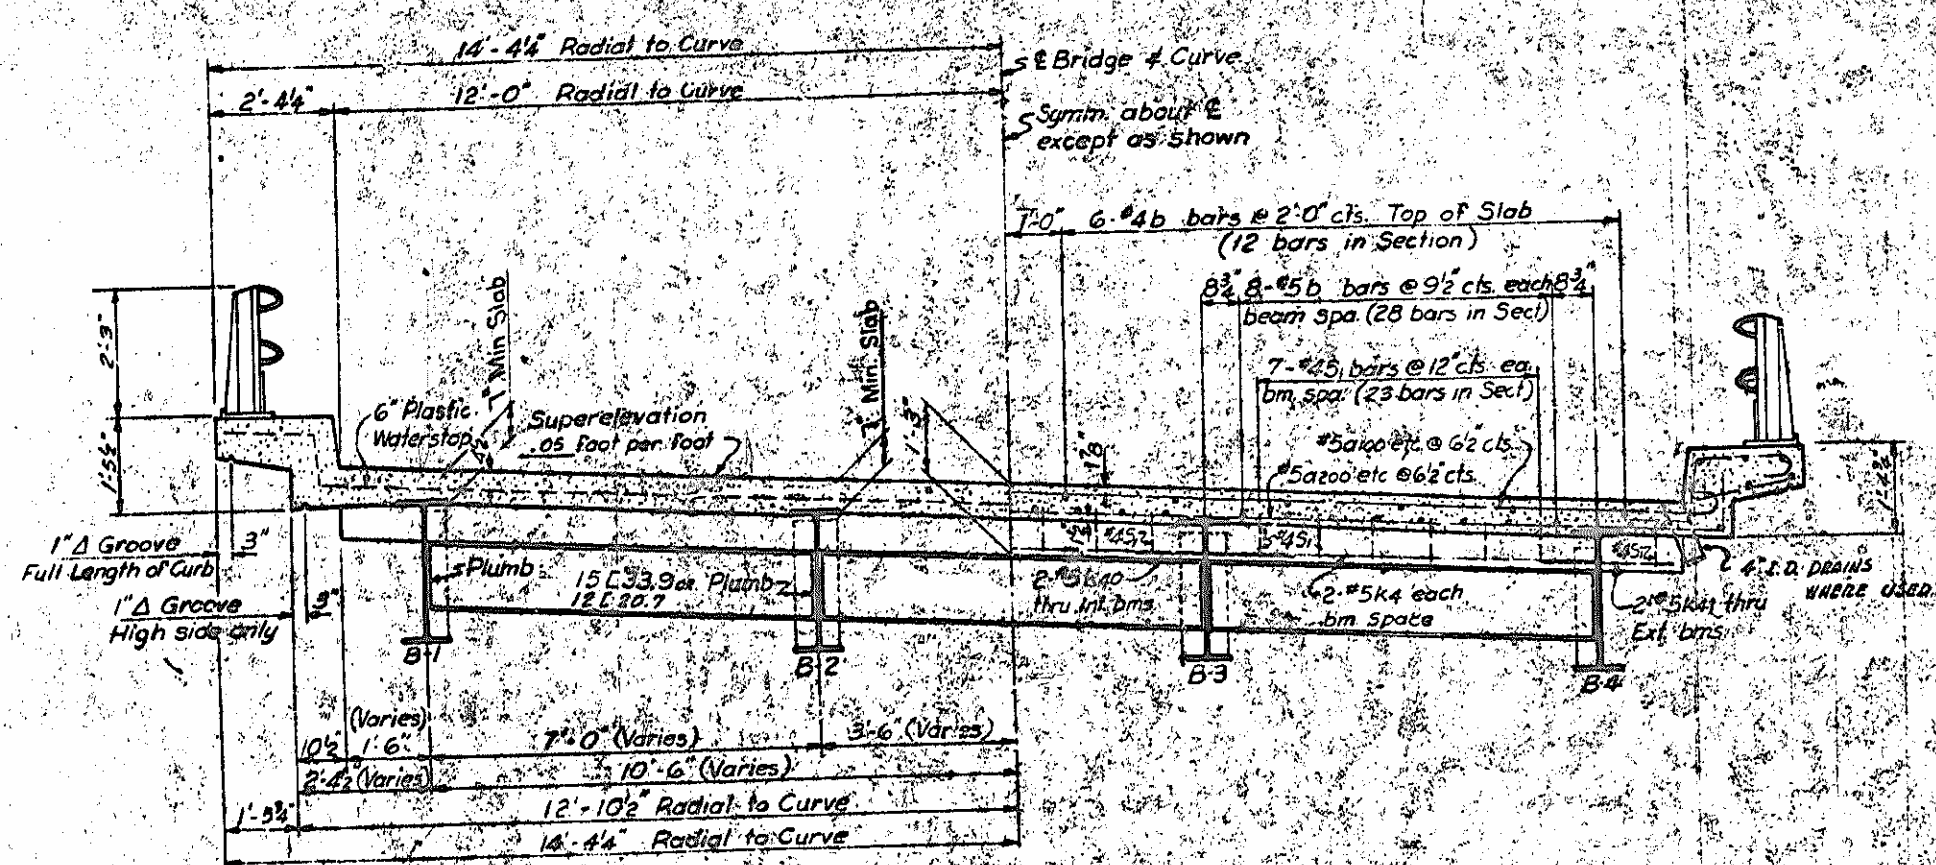 14'-4¼" Radial to Curve
℄ Bridge & Curve
2'-4¼"
12'-0" Radial to Curve
Symm. about ℄
except as shown
1'-0"
6-#4b bars @ 2'-0" cts. Top of Slab
(12 bars in Section)
8¾"
8-#5b bars @ 9½" cts. each
8¾"
beam spa. (28 bars in Sect)
2'-3"
7" Min Slab
7" Min. Slab
7-#4S1 bars @ 12" cts. ea.
bm. spa. (23 bars in Sect)
6" Plastic
Waterstop
Superelevation
.05 foot per foot
1'-3"
#5a100 etc @ 6½" cts.
#5a200 etc @ 6½" cts.
1⅞"
1'-5½"
1'-5½"
1" Δ Groove
Full Length of Curb
3"
#4S2
5-#4S1
#4S2
Plumb
15 [ 33.9 or
12 [ 20.7
Plumb
2-#5k40
thru int. bms
2-#5k4 each
bm space
2-#5k41 thru
Ext. bms
4" I.D. DRAINS
WHERE USED
1" Δ Groove
High side only
3"
B-1
B-2
B-3
B-4
10½"
(Varies)
1'-6"
7'-0" (Varies)
3'-6" (Varies)
2'-4½ (Varies)
10'-6" (Varies)
1'-5¾"
12'-10½" Radial to Curve
14'-4¼" Radial to Curve